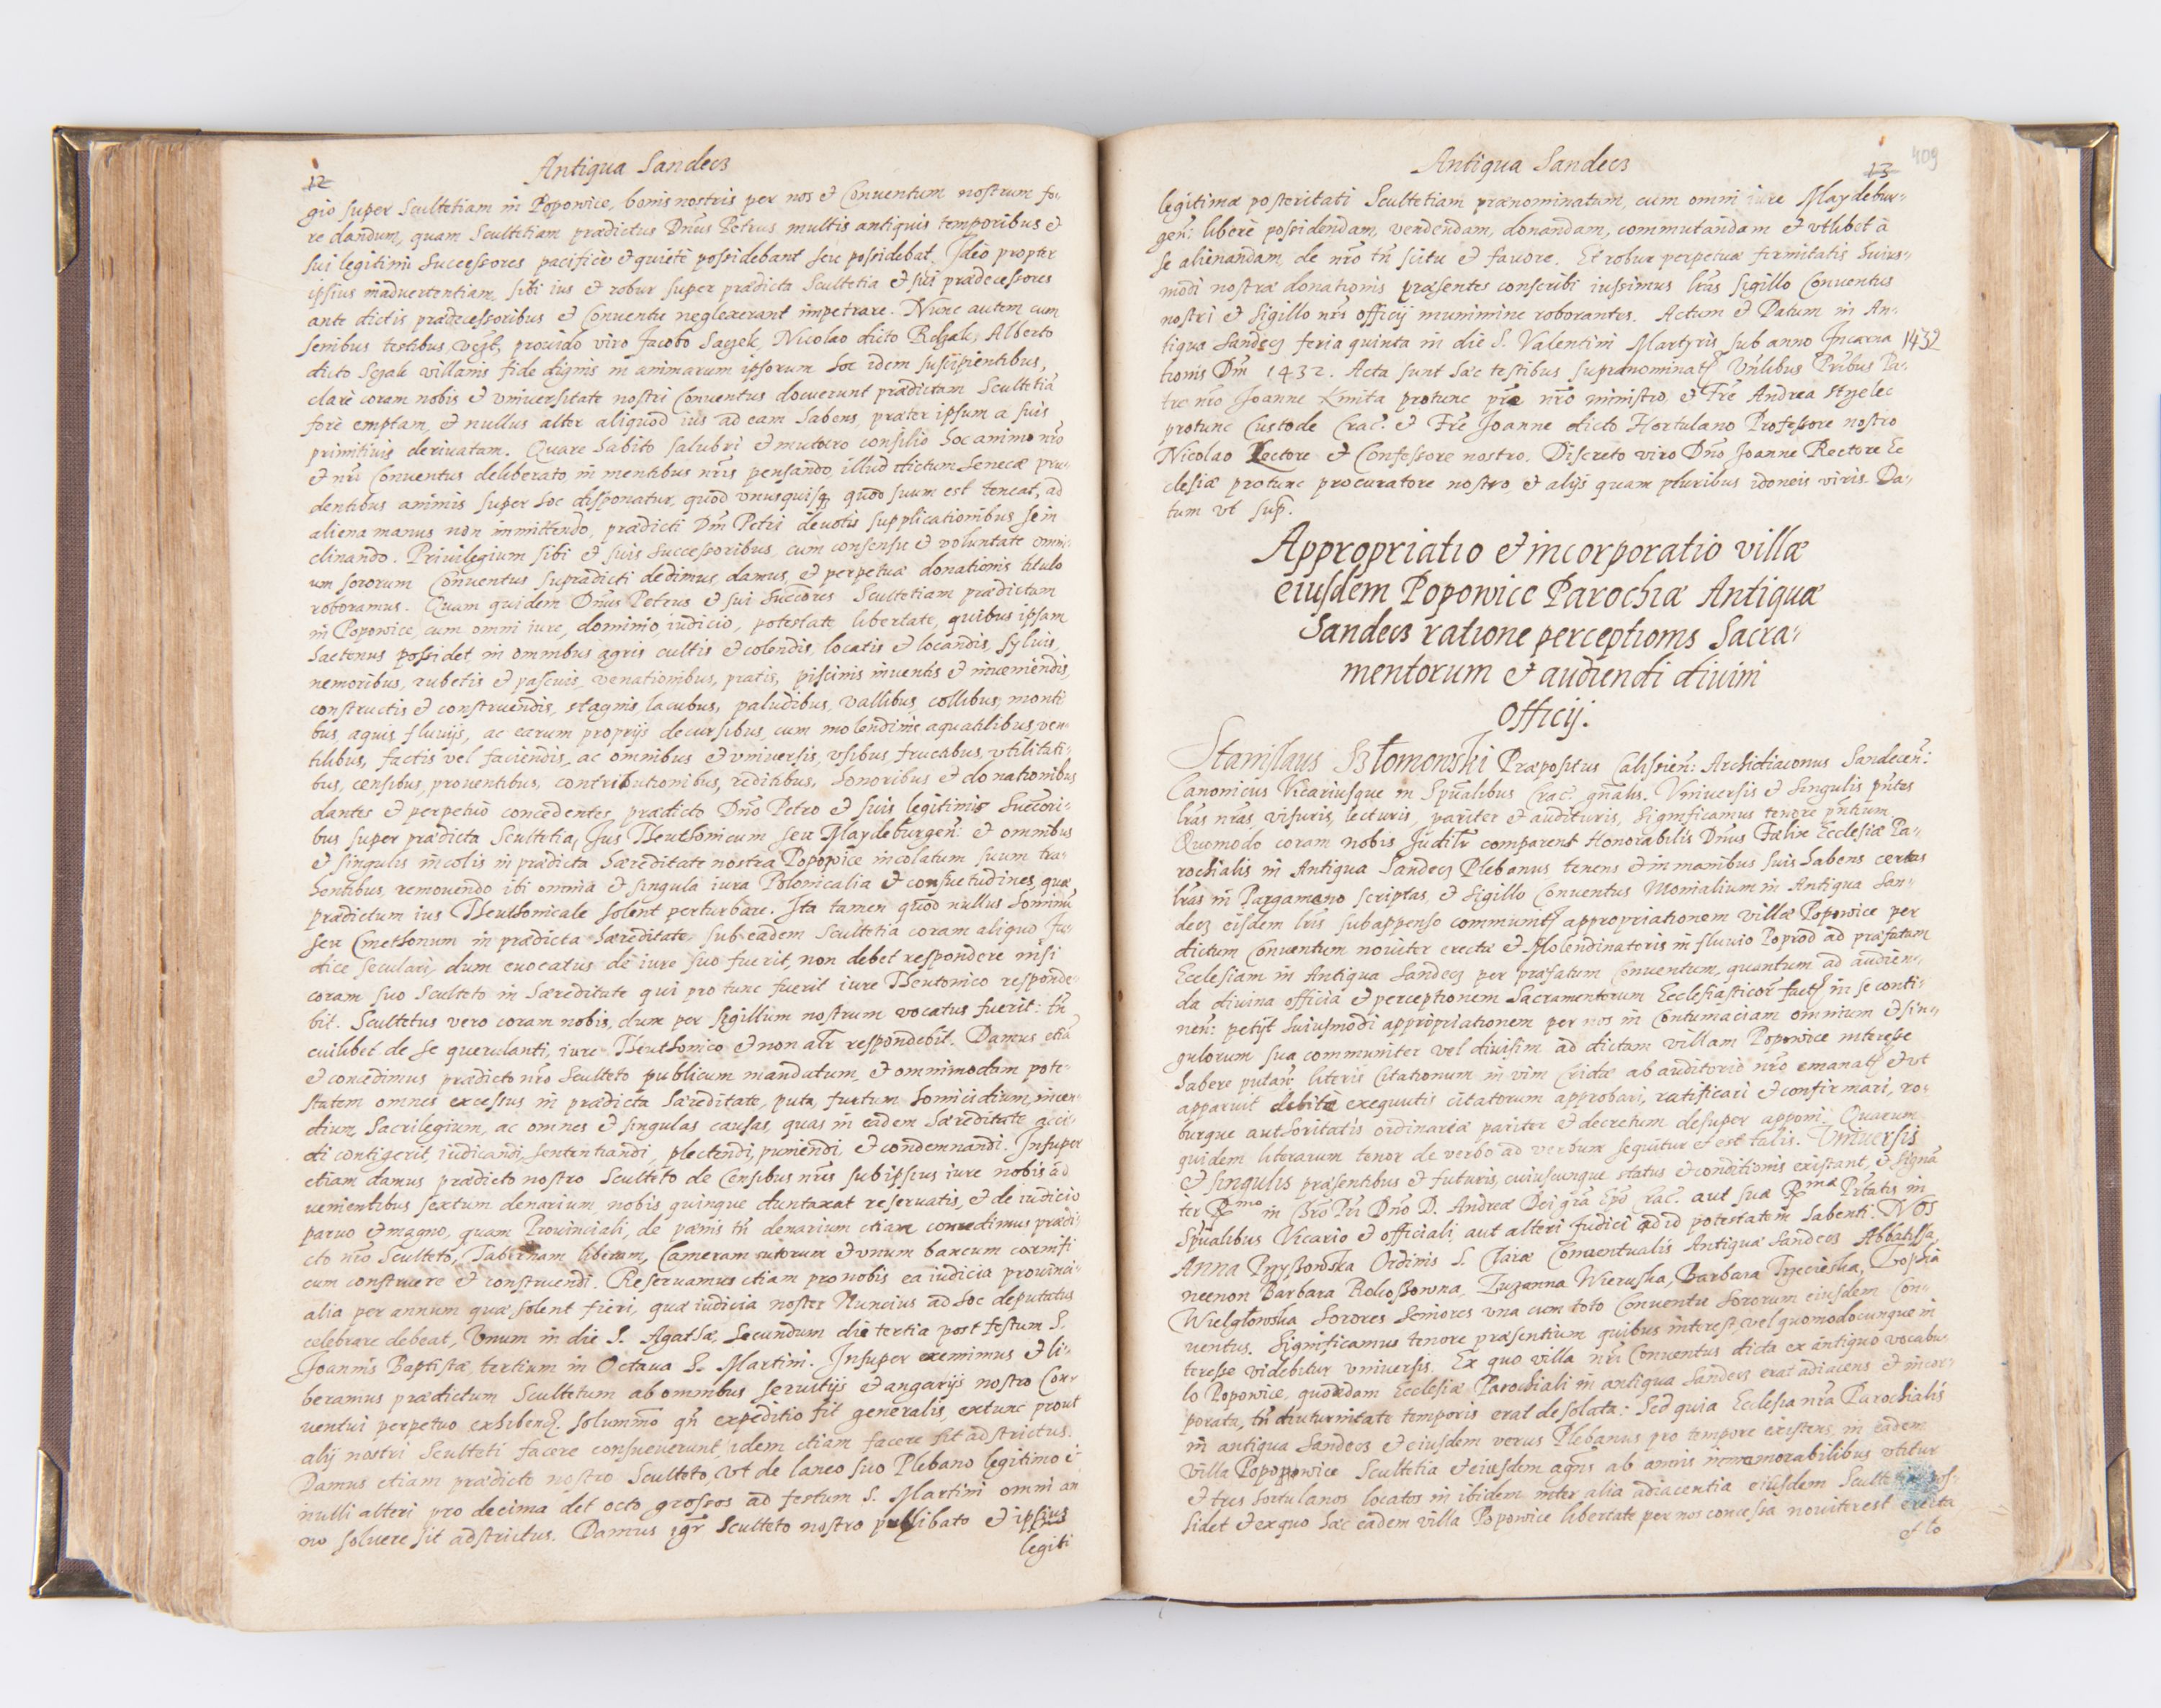 12
Antiqua Sandecz
gio super Scultetiam in Popowice, bonis nostris per nos et Conuentum nostrum fo-
re dandum, quam Scultetiam prædictus Dñus Petrus multis antiquis temporibus et
sui legitimi Successores pacificè et quietè possidebant seu possidebat. Ideo propter
ipsius inaduertentiam, sibi ius et robur super prædicta Scultetia et sui prædecessores
ante dictis prædecessoribus et Conuentu neglexerant impetrare. Nunc autem cum
senibus testibus, prouido viro Jacobo Nicolao dicto Alberto
dicto villanis fide dignis in animarum ipsorum hoc idem suscipientibus,
clarè coram nobis et vniuersitate nostri Conuentus docuerunt prædictam Scultetiã
fore emptam, et nullus alter aliquod ius ad eam habens, præter ipsum a suis
primitiuis deriuatam. Quare habito salubri et maturo consilio hoc animo nr̃o
et nr̃i Conuentus deliberato, in mentibus nr̃is pensando, illud dictum Senecæ pru-
dentibus animis super hoc disponatur, quod vnusquisq quod suum est teneat, ad
aliena manus non immittendo, prædicti Dñi Petri deuotis supplicationibus se in
clinando. Priuilegium sibi et suis Successoribus cum consensu et voluntate omni-
um sororum Conuentus supradicti dedimus, damus, et perpetuæ donationis titulo
roboramus. Quam quidem Dñus Petrus et sui Succõres Scultetiam prædictam
in Popowice, cum omni iure, dominio, iudicio, potestate libertate, quibus ipsam
hactenus possidet in omnibus agris cultis et colendis, locatis et locandis, syluis,
nemoribus, rubetis et pascuis, venationibus, pratis, piscinis inuentis et inueniendis,
constructis et construendis, stagnis, lacubus, paludibus, vallibus, collibus, monti
bus, aquis fluuijs, ac earum proprijs decursibus, cum molendinis aquatilibus, ven-
tilibus, factis vel faciendis, ac omnibus et vniuersis, vsibus, fructibus, vtilitati-
bus, censibus, prouentibus, contributionibus, reditibus, honoribus et donationibus
dantes et perpetuò concedentes, prædicto Dño Petro et suis legitimis Succõri-
bus super prædicta Scultetia, Jus Theuthonicum seu Maydeburgeñ: et omnibus
et singulis incolis in prædicta hæreditate nostra Popowice incolatum suum tra-
hentibus, remouendo ibi omnia et singula iura Polonicalia et consuetudines, quæ
prædictum ius Theuthonicale solent perturbare. Ita tamen quod nullus hominũ
seu Cmethonum in prædicta hæreditate, sub eadem Scultetia coram aliquo Ju-
dice seculari, dum euocatus de iure suo fuerit, non debet respondere nisi
coram suo Sculteto in hæreditate qui pro tunc fuerit iure Theutonico responde-
bit. Scultetus vero coram nobis, dum per sigillum nostrum vocatus fuerit: tñ
cuilibet de se querulanti, iure Theuthonico et non alr̃ respondebit. Damus etiã
et concedimus prædicto nr̃o Sculteto publicum mandatum, et omnimodam pote-
statem omnes excessus in prædicta hæreditate, puta furtum homicidium, incen-
dium, Sacrilegium, ac omnes et singulas causas, quas in eadem hæreditate acci-
di contigerit, iudicandi, sententiandi, plectendi, puniendi, et condemnandi. Insuper
etiam damus prædicto nostro Sculteto de Censibus nr̃is sub ipsius iure nobis ad
uenientibus sextum denarium, nobis quinque duntaxat reseruatis, et de iudicio
paruo et magno, quam Prouinciali, de pænis tñ denarium etiam concedimus prædi-
cto nr̃o Sculteto, Tabernam liberam, Cameram sutorum et vnum bancum carnifi
cum construere et construendi. Reseruamus etiam pro nobis ea iudicia prouinci-
alia per annum quæ solent fieri, quæ iudicia noster Nuncius ad hoc deputatus
celebrare debeat, Vnum in die S. Agathæ, Secundum die tertia post festum S.
Joannis Baptistæ, tertium in Octaua S. Martini. Insuper eximimus et li-
beramus prædictum Scultetum ab omnibus seruitijs et angarijs nostro Con-
uentui perpetuo solummo qñ expeditio fit generalis, extunc prout
alij nostri Sculteti facere consueuerunt, idem etiam facere sit adstrictus.
Damus etiam prædicto nostro Sculteto, vt de laneo suo Plebano legitimo et
nulli alteri pro decima det octo grossos ad festum S. Martini omni an
no soluere sit adstrictus. Damus igr̃ Sculteto nostro et ipsius
legiti
Antiqua Sandecz
13
409
legitimæ posteritati Scultetiam prænominatum, cum omni iure Maydebur-
geñ: liberè possidendam, vendendam, donandam, commutandam et vtlibet à
se alienandam, de nr̃o tñ scitu et fauore. Et robur perpetuæ firmitatis huius-
modi nostræ donationis præsentes conscribi iussimus lr̃as sigillo Conuentus
nostri et sigillo nr̃i officij munimine roborantes. Actum et Datum in An-
tiqua Sandecz feria quinta in die S. Valentini Martyris sub anno Incarna
1432
tionis Dñi 1432. Acta sunt hæc testibus supranominatis Vñlibus Pr̃ibus Pa-
tre nr̃o Joanne Kmita protunc pr̃e nr̃o ministro, et Fr̃e Andrea
protunc Custode Crac. et Fr̃e Joanne dicto Hortulano Professore nostro
Nicolao Lectore et Confessore nostro. Discreto viro Dño Joanne Rectore Ec
clesiæ protunc procuratore nostro, et alijs quam pluribus idoneis viris. Da-
tum vt sup.
Appropriatio et incorporatio villæ
eiusdem Popowice Parochiæ Antiquæ
Sandecz ratione perceptionis Sacra-
mentorum et audiendi diuini
Officij.
Stanislaus Præpositus Calissieñ: Archidiaconus Sandeceñ:
Canonicus Vicariusque in Sp̃ualibus Crac. gñalis. Vniuersis et singulis pñtes
lr̃as nr̃as visuris, lecturis, pariter et audituris, significamus tenore pñtium
Quomodo coram nobis Judilr comparens Honorabilis Dñus Fælix Ecclesiæ Pa-
rochialis in Antiqua Sandecz Plebanus tenens et in manibus suis habens certas
lr̃as in Pargameno scriptas, et Sigillo Conuentus Monialium in Antiqua San-
decz eisdem lr̃is subappenso communitas appropriationem villæ Popowice per
dictum Conuentum nouiter erectæ et Molendinatoris in fluuio Poprod ad præfatam
Ecclesiam in Antiqua Sandecz per præfatum Conuentum, quantum ad audien-
da diuina officia et perceptionem Sacramentorum Ecclesiasticor̃ in se conti-
neñ: petijt huiusmodi appropriationem per nos in Contumaciam omnium et sin-
gulorum sua communiter vel diuisim ad dictam villam Popowice interesse
habere putañ literis Citationum in vim Cridæ ab auditorio nr̃o emanatis et vt
apparuit debitè exequutis citatorum approbari, ratificari et confirmari, ro-
burque authoritatis ordinariæ pariter et decretum desuper apponi. Quarum
quidem literarum tenor de verbo ad verbum sequitur et est talis. Vniuersis
et singulis præsentibus et futuris, cuiuscunque status et conditionis existant, et signã
ter Rmo in Chr̃o Pr̃i Dño D. Andreæ Dei gr̃a Ep̃o Crac. aut suæ Rmæ Pr̃tatis in
Sp̃ualibus Vicario et officiali, aut alteri Judici ad id potestatem habenti. Nos
Anna Ordinis S. Claræ Conuentualis Antiquæ Sandecz Abbatissa,
necnon Barbara Zuzanna Wieruska, Barbara Zophia
Wielgłowska Sorores Seniores vna cum toto Conuentu Sororum eiusdem Con-
uentus. Significamus tenore præsentium quibus interest, vel quomodocunque in
teresse videbitur vniuersis. Ex quo villa nr̃i Conuentus dicta ex antiquo vocabu-
lo Popowice, quondam Ecclesiæ Parochiali in antiqua Sandecz erat adiacens et incor-
porata, tñ diuturnitate temporis erat desolata: Sed quia Ecclesia nr̃a Parochialis
in antiqua Sandecz et eiusdem verus Plebanus pro tempore existens, in eadem
villa Popowice Scultetia et eiusdem agris ab annis vtitur
et tres hortulanos locatos in ibidem inter alia adiacentia eiusdem pos-
sidet et ex quo hæc eadem villa Popowice libertate per nos concessa nouiter est erecta
et lo